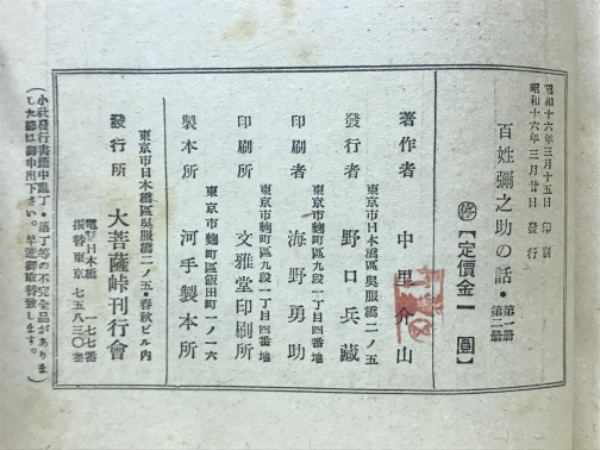 昭和十六年三月十五日 印刷
昭和十六年三月廿日 發行
百姓彌之助の話・第一册 第二册
㊞【定價金一圓】
著作者 中里介山
東京市日本橋區吳服橋二ノ五
發行者 野口兵藏
東京市麴町區九段一丁目四番地
印刷者 海野勇助
東京市麴町區九段一丁目四番地
印刷所 文雅堂印刷所
東京市麴町區飯田町一ノ一六
製本所 河手製本所
東京市日本橋區吳服橋二ノ五・春秋ビル内
發行所 大菩薩峠刊行會
電話日本橋 一七七番
振替東京 七五八三〇番
(小社發行書籍中亂丁・落丁等の不完全品がありま
した節は御申出下さい。早速御取替致します。)